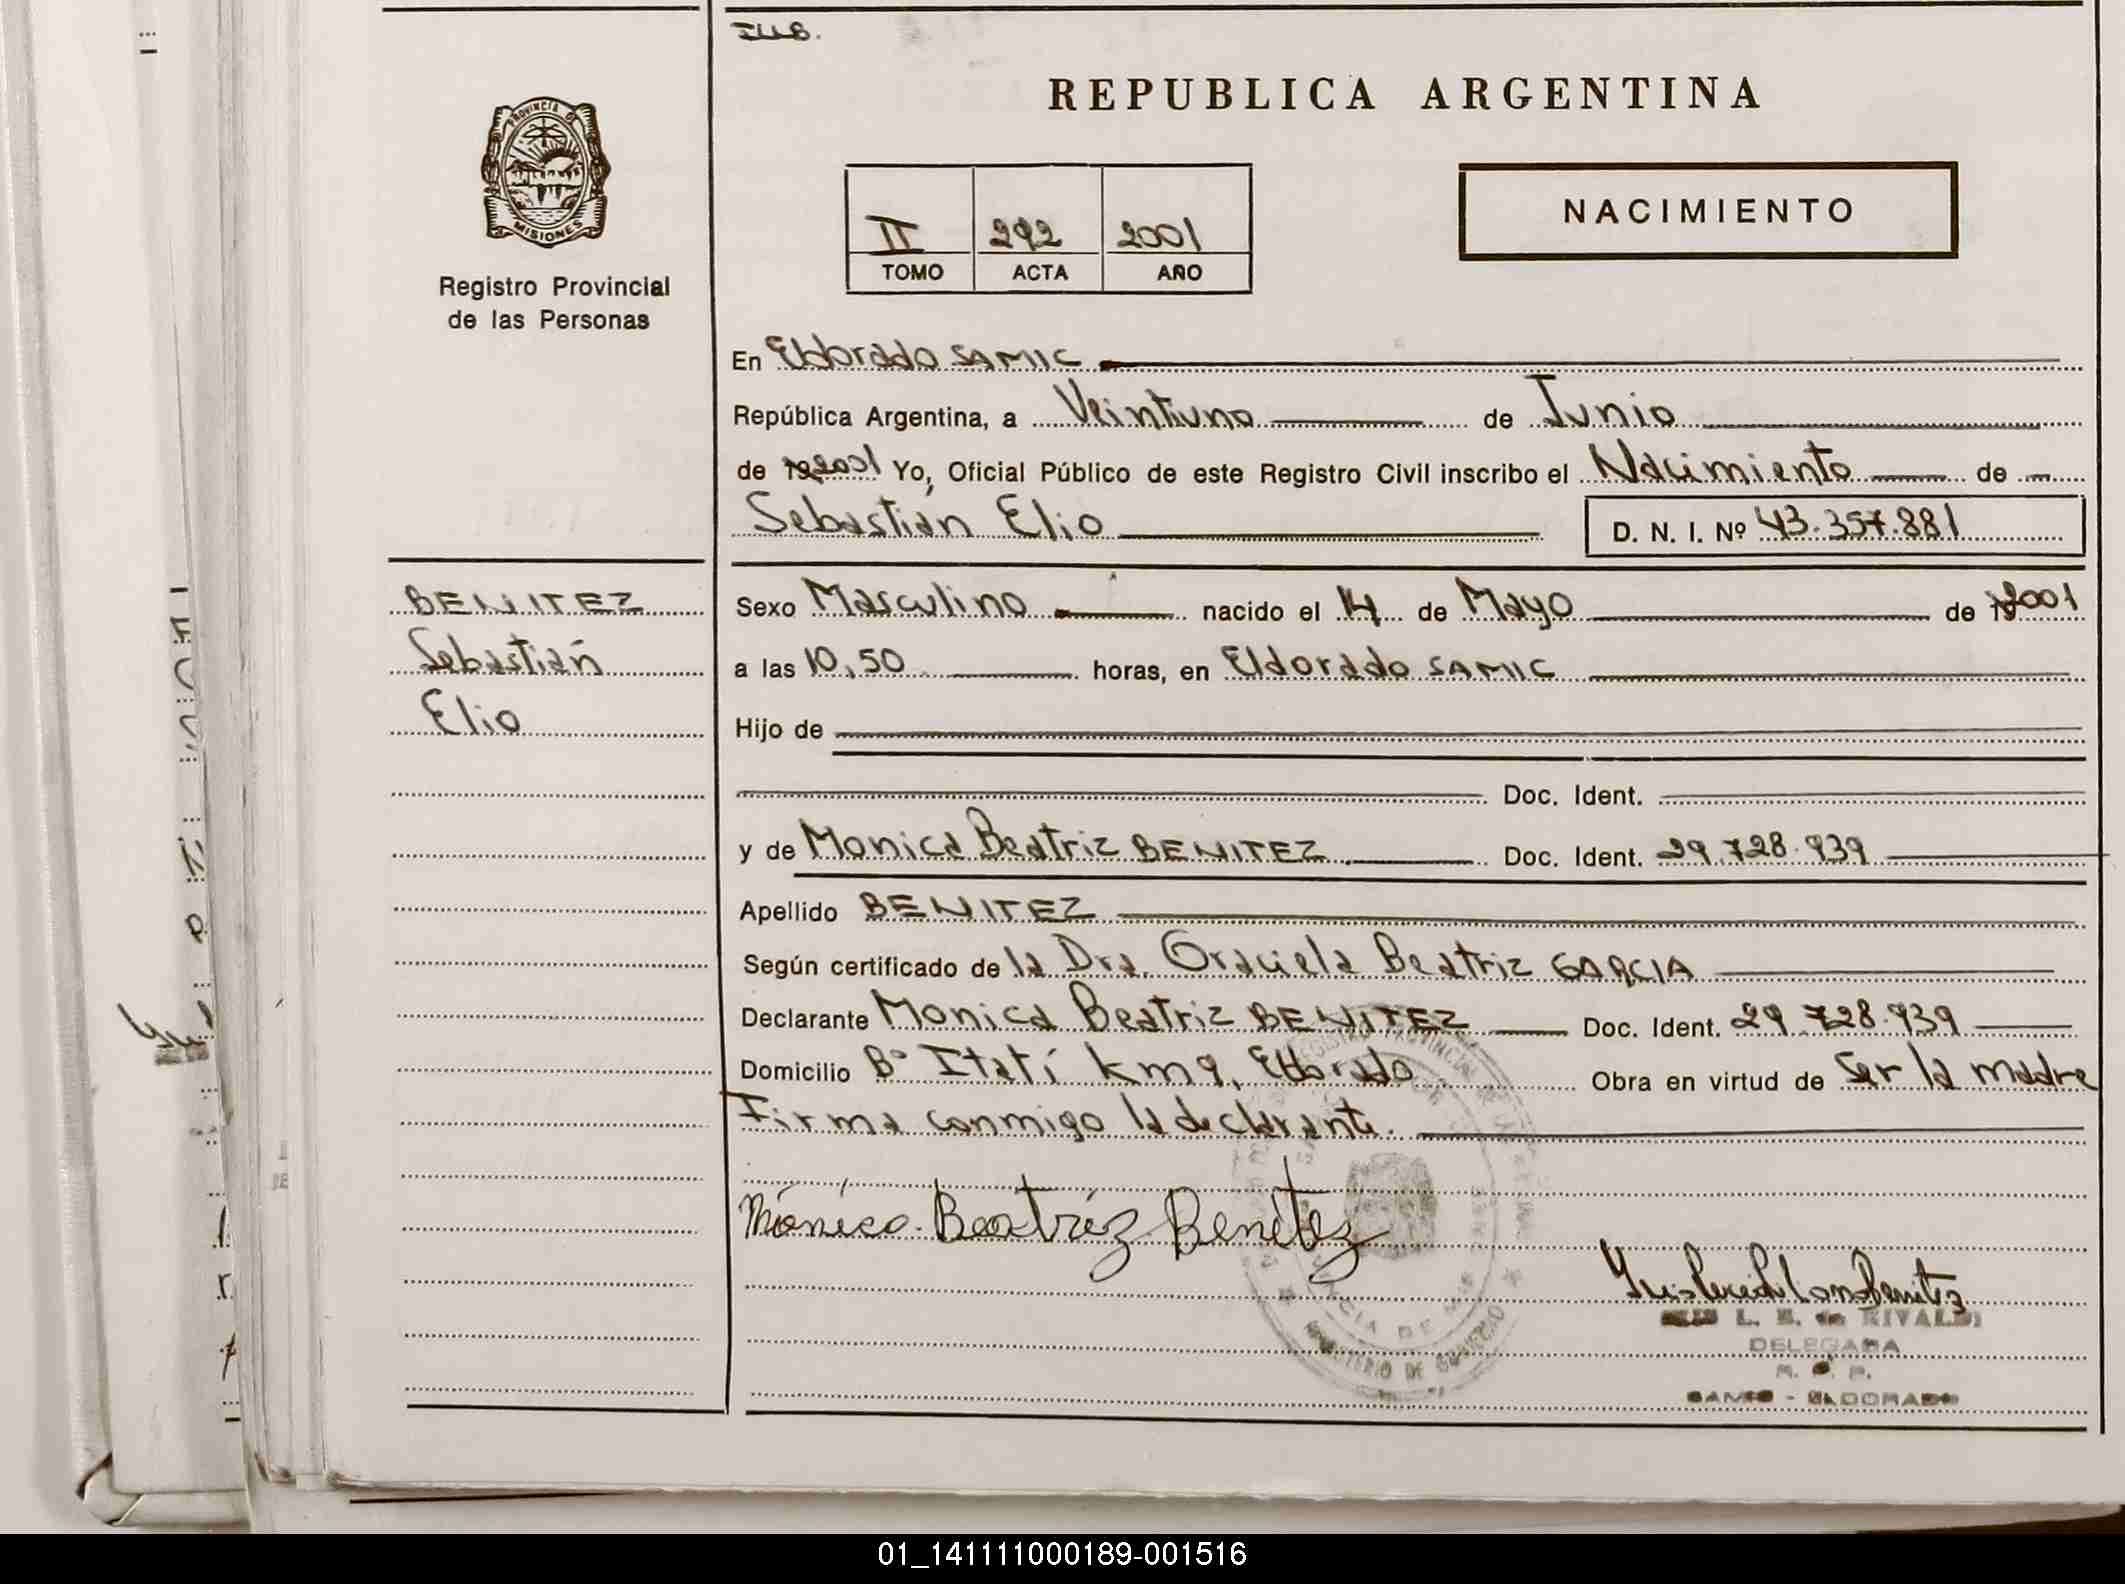 REPUBLICA ARGENTINA
PROVINCIA DE
MISIONES
Registro Provincial
de las Personas
II 292 2001
TOMO ACTA AÑO
NACIMIENTO
En Eldorado SAMIC
República Argentina, a Veintiuno de Junio
de 2001 Yo, Oficial Público de este Registro Civil inscribo el Nacimiento de
Sebastián Elio D. N. I. Nº 43.357.881
BENITEZ
Sebastián
Elio
Sexo Masculino nacido el 14 de Mayo de 2001
a las 10,50 horas, en Eldorado SAMIC
Hijo de
Doc. Ident.
y de Monica Beatriz BENITEZ Doc. Ident. 29.728.939
Apellido BENITEZ
Según certificado de la Dra. Graciela Beatriz GARCIA
Declarante Monica Beatriz BENITEZ Doc. Ident. 29.728.939
Domicilio Bº Itatí km 9, Eldorado Obra en virtud de ser la madre
Firma conmigo la declarante.
Mónica Beatríz Benítez
L. B. de RIVALDI
DELEGADA
R. P. P.
SAMIC - ELDORADO
MINISTERIO DE GOBIERNO
01_141111000189-001516